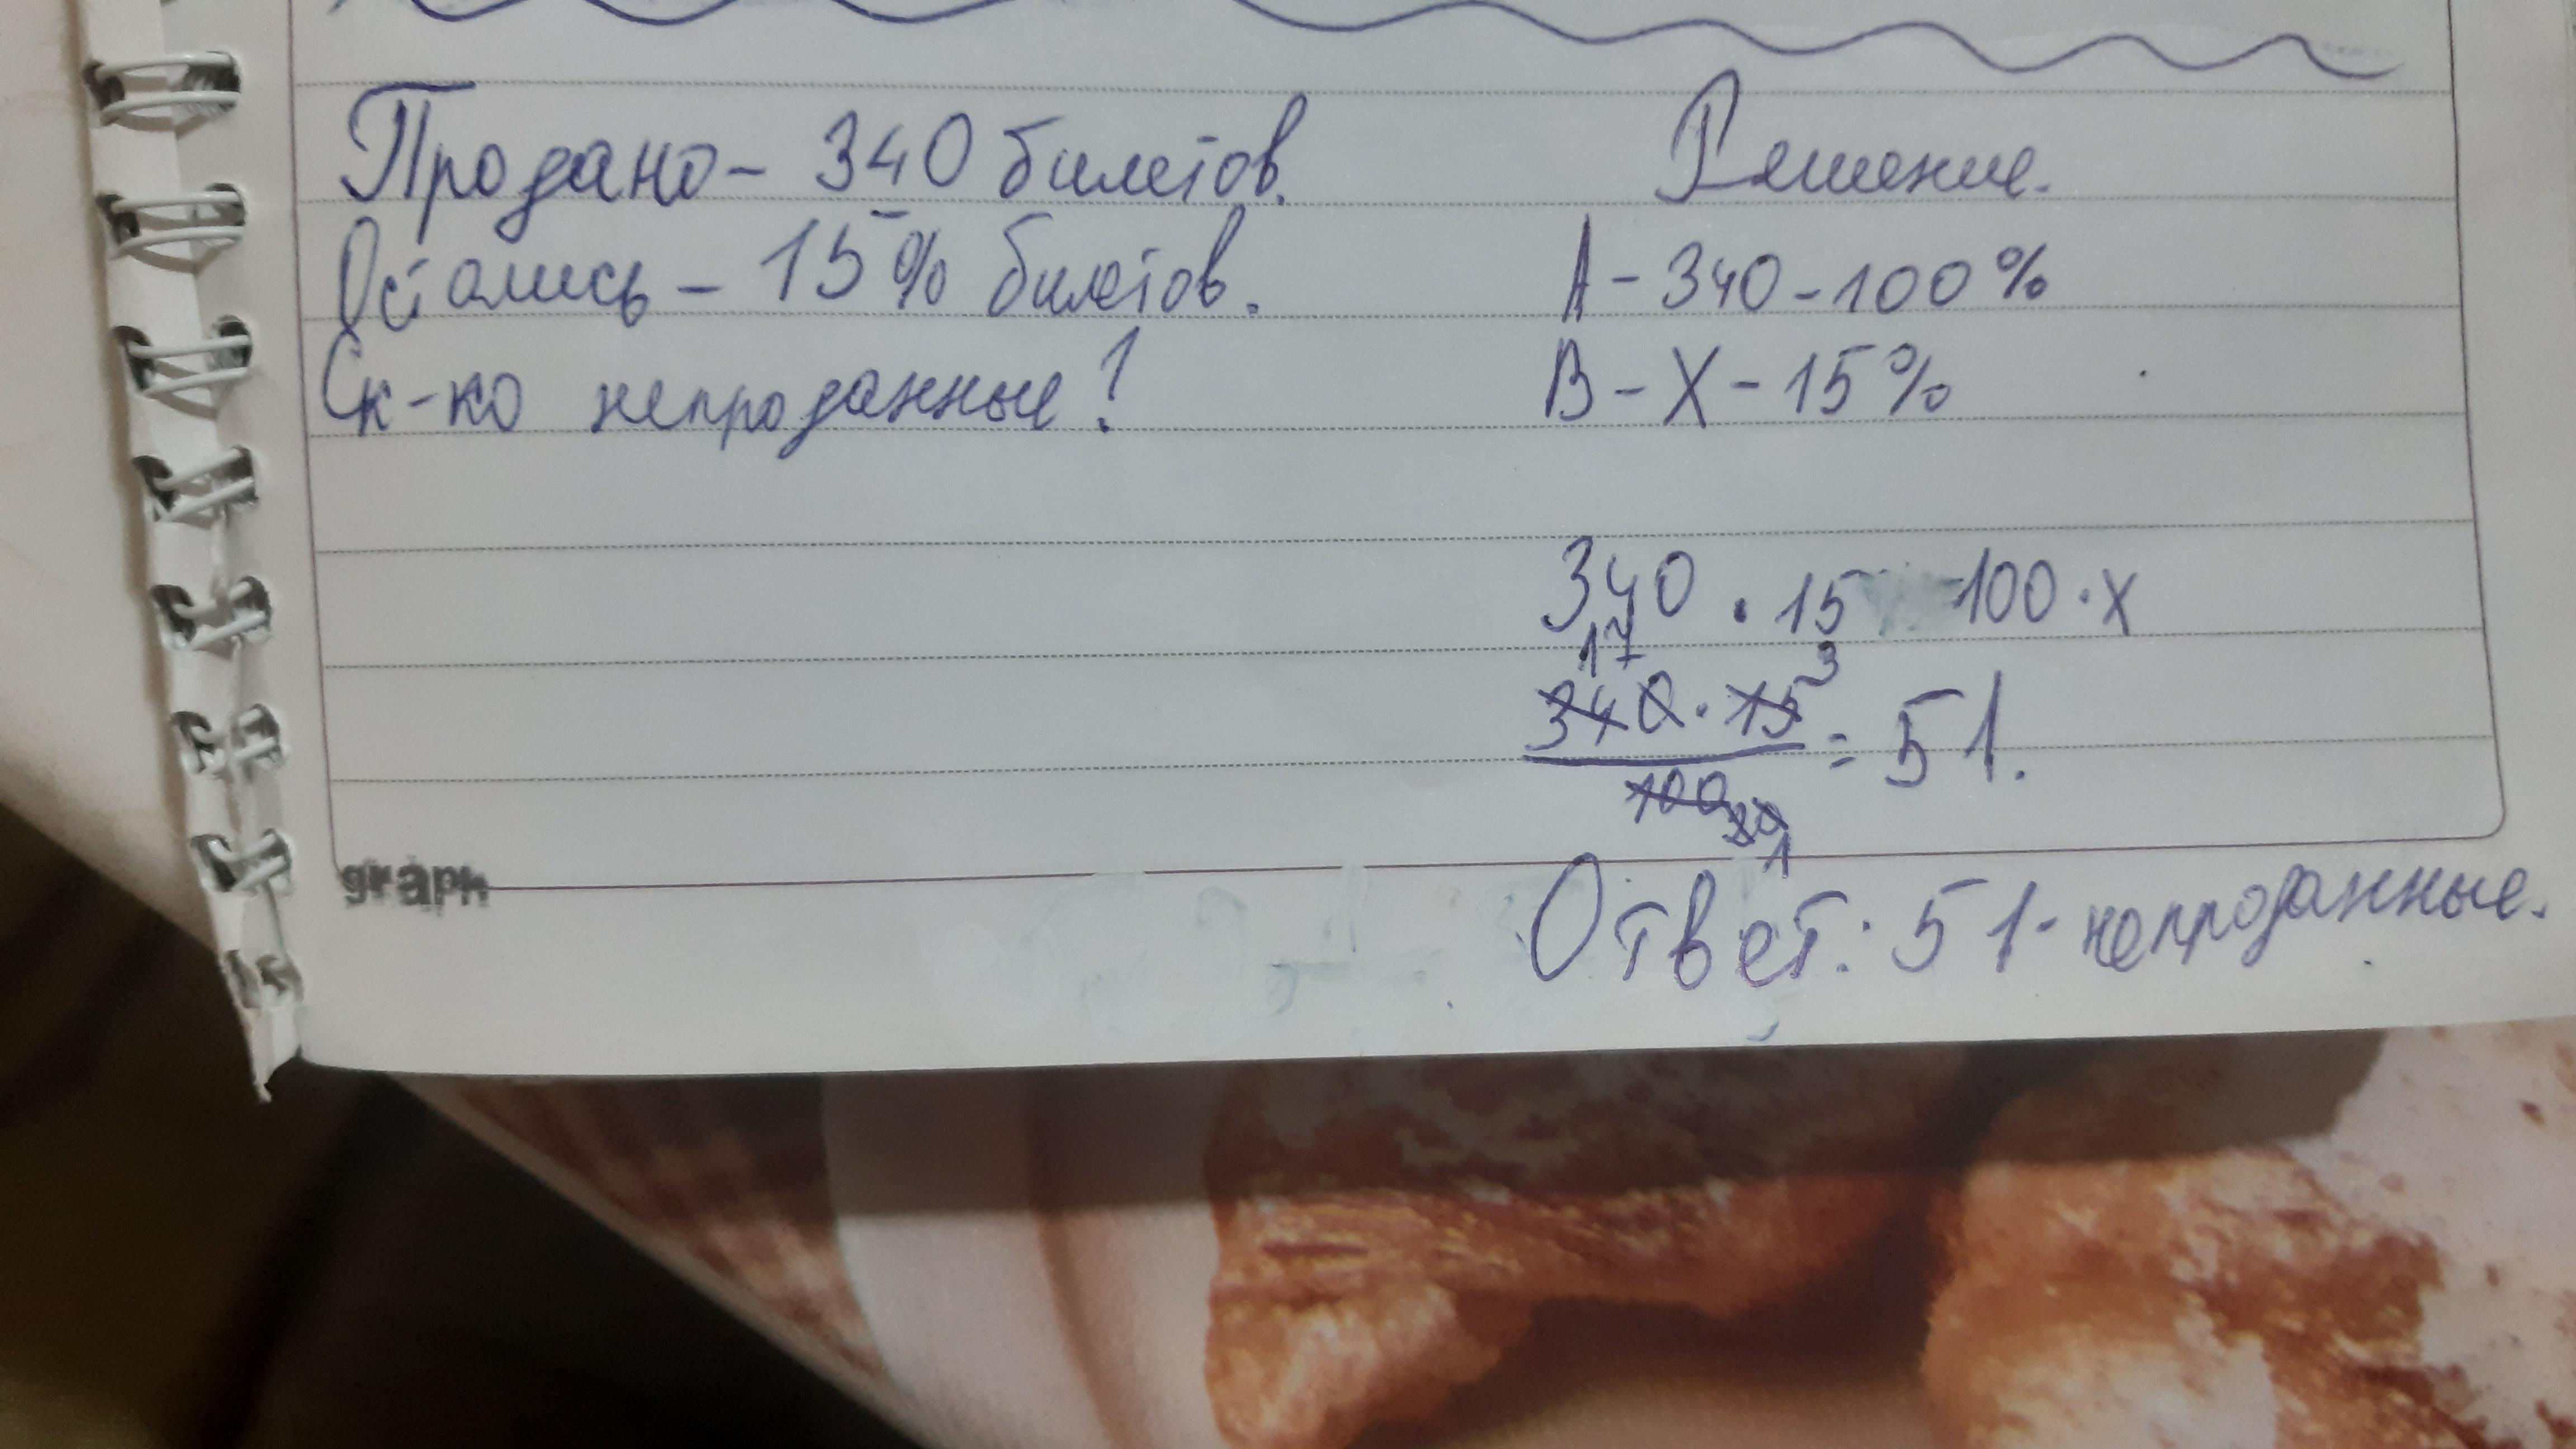 Продано - 340 билетов.
Остались - 15% билетов.
Ск-ко непроданные?
Решение.
А - 340 - 100%
В - Х - 15%
340 · 15 100 · х
17 3
340 · 15 = 51.
100 20
1
Ответ: 51 - непроданные.
graph